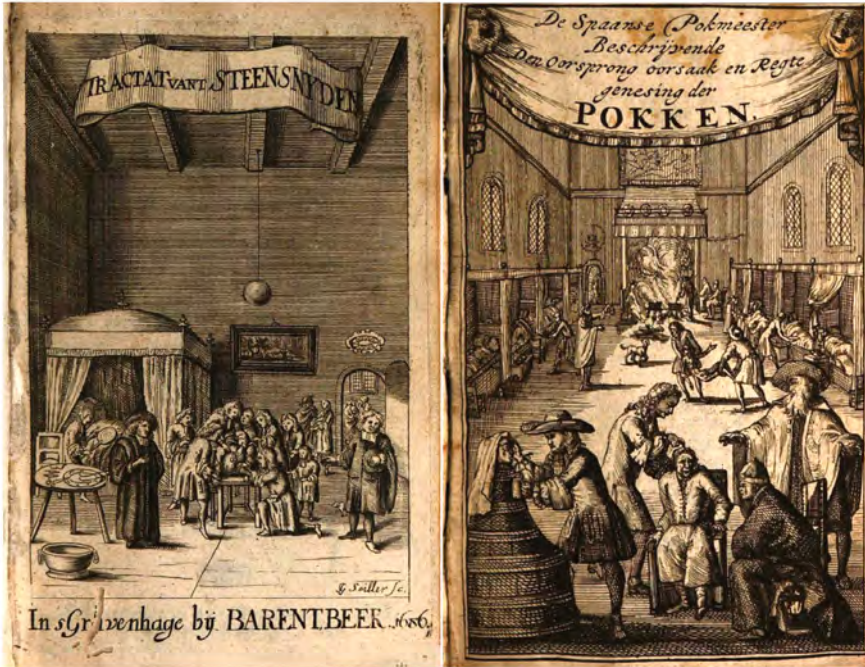 TRACTAT VANT STEENSNYDEN
G Seiller Sc.
In sGravenhage bij BARENT BEEK. 1686.
De Spaanse Pokmeester
Beschrijvende
Den Oorsprong oorsaak en Regte
genesing der
POKKEN.